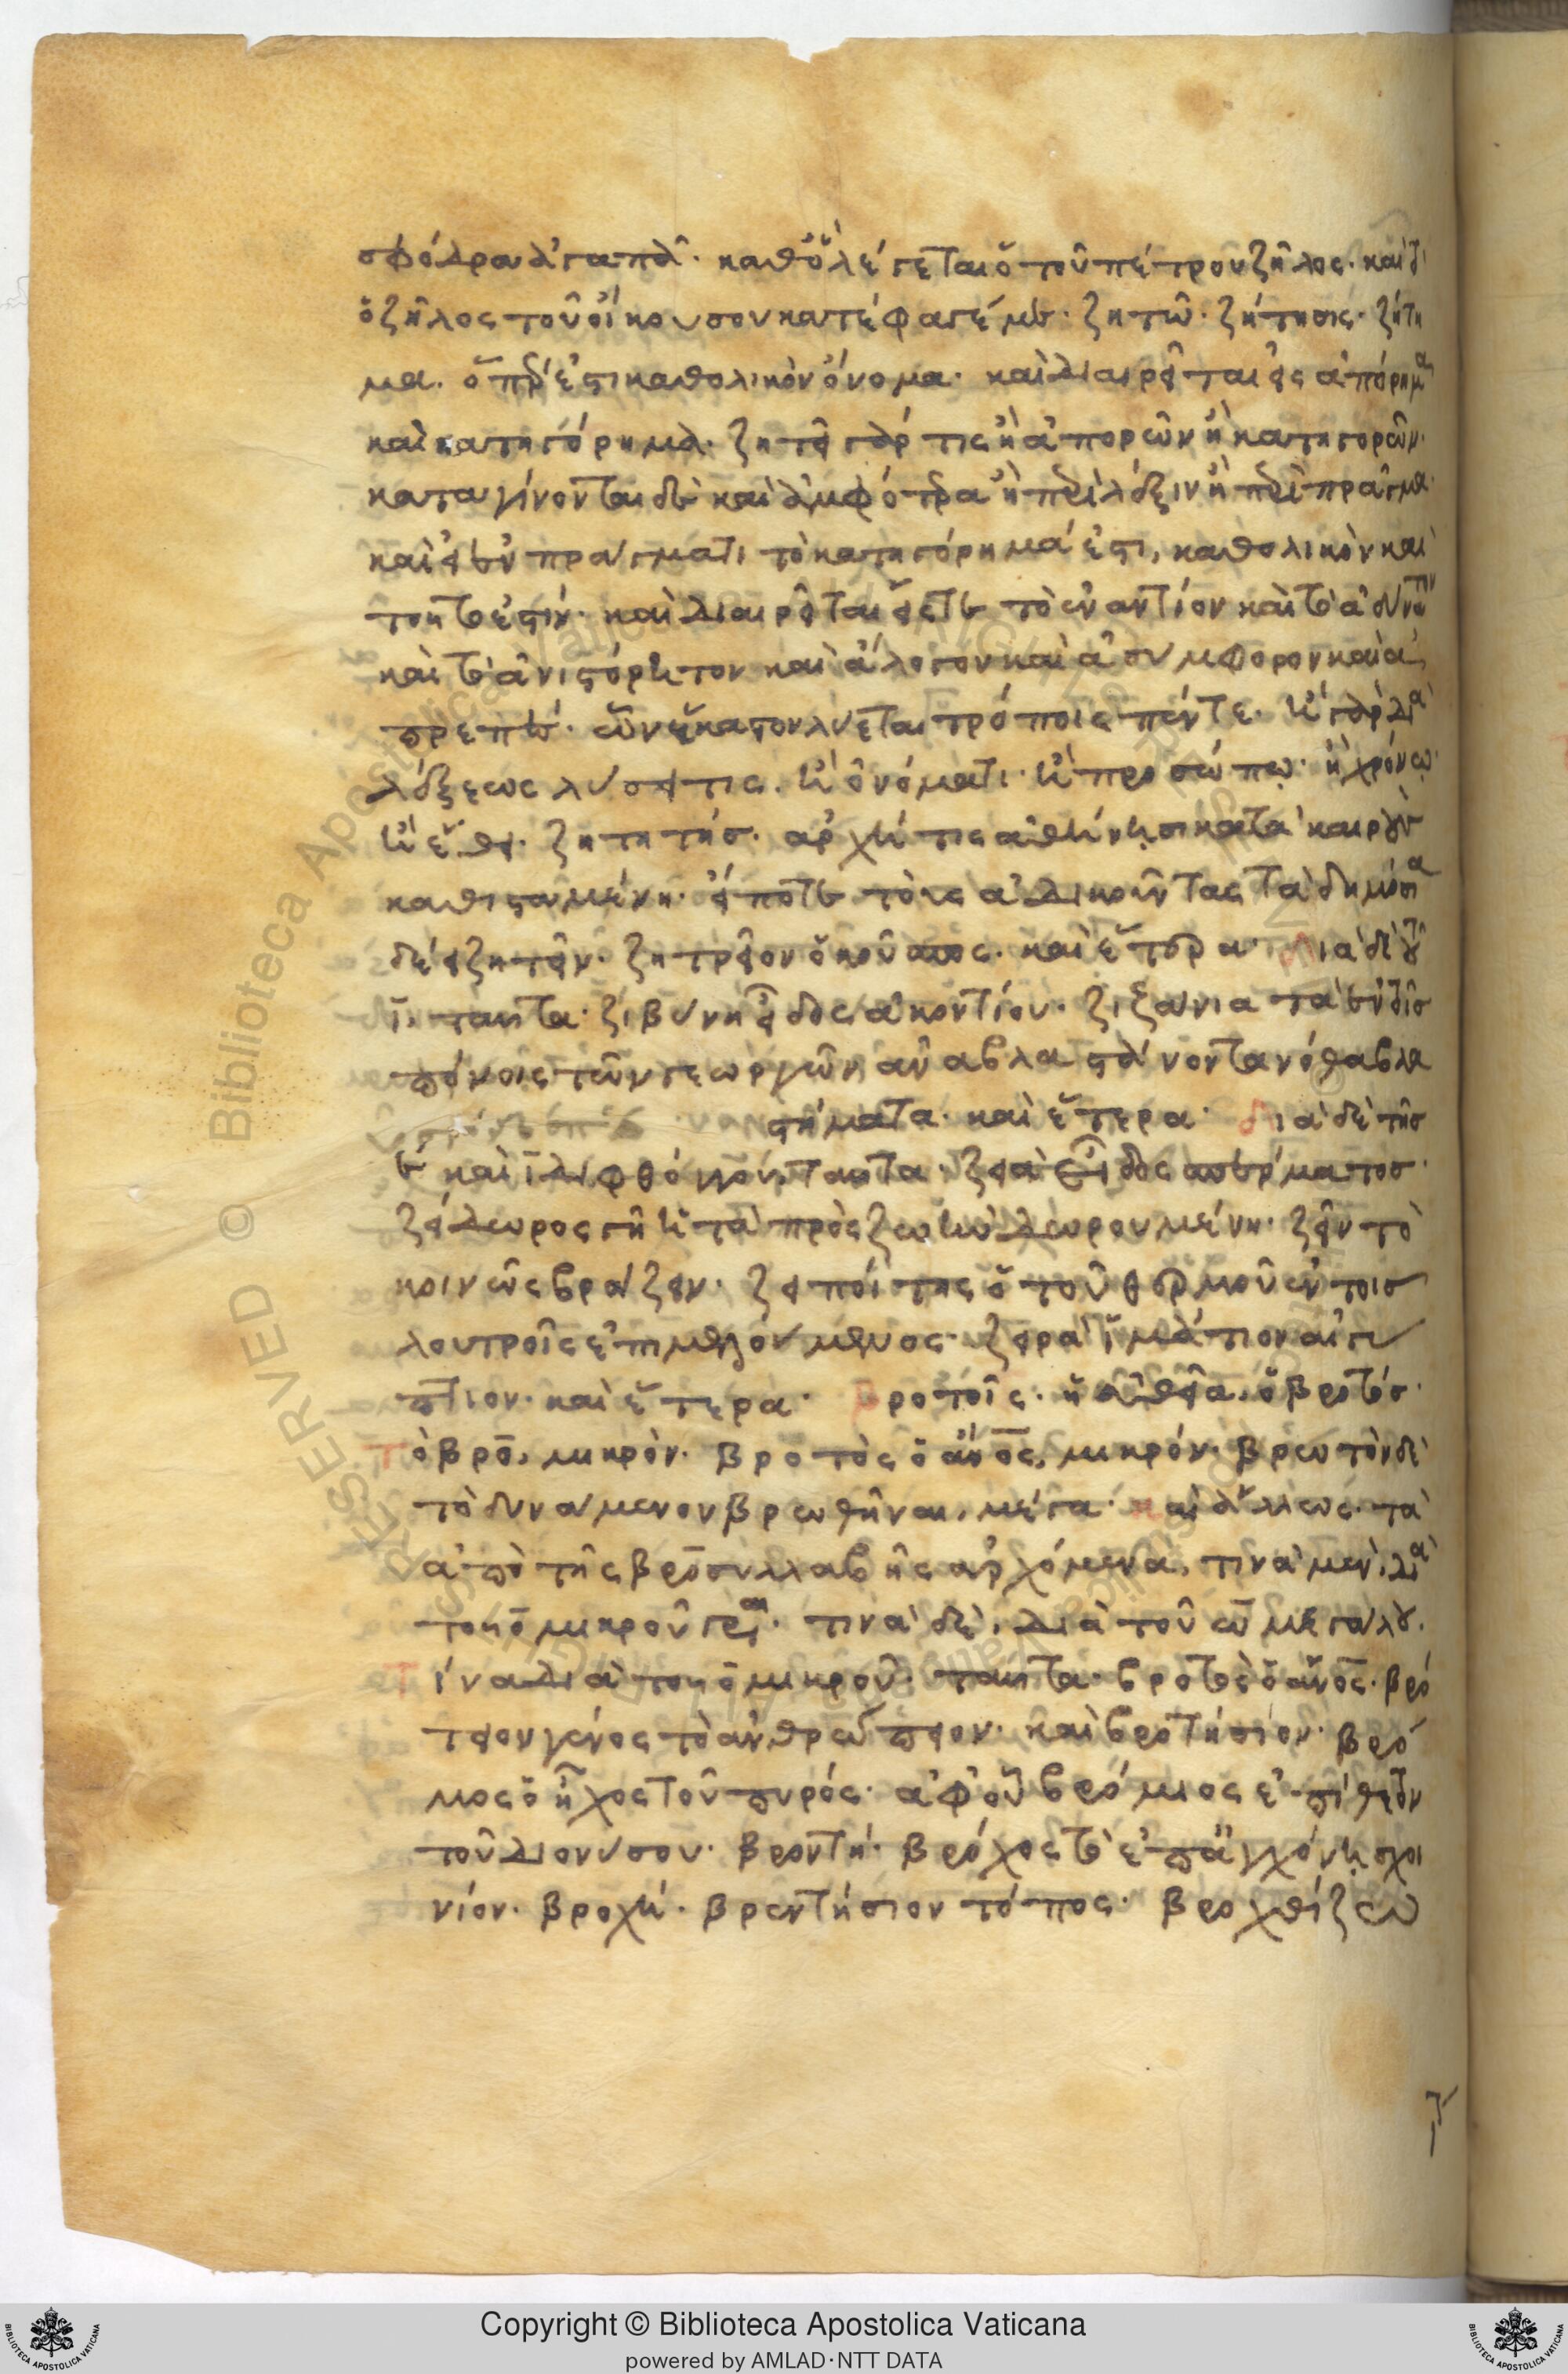 σφόδρα ἀγαπᾶν· καθὃ λέγεται ὁ τοῦ πέτρου ζῆλος· καὶ
ὁ ζῆλος τοῦ οἴκου σου κατέφαγέ με· ζητῶ· ζήτησις· ζήτη
μα. ὅπερ ἐστι καθολικὸν ὄνομα· καὶ διαιρεῖται εἰς ἀπόρημα
καὶ κατηγόρημα· ζητεῖ γάρ τις ἢ ἀπορῶν ἢ κατηγορῶν·
καταγίνονται δὲ καὶ ἀμφότερα ἢ περὶ λέξιν ἢ περὶ πρᾶγμα·
καὶ εἰ ἐν πράγματι τὸ κατηγόρημά ἐστι, καθολικὸν καὶ
τοῦτο ἐστίν· καὶ διαιρεῖται εἴς τε τὸ ἐναντίον καὶ τὸ ἀδύνατον
καὶ τὸ ἀνιστόρητον καὶ ἄλογον καὶ ἀσύμφορον καὶ ἀ
πρεπές· ὧν ἕκαστον λύεται τρόποις πέντε· ἢ γὰρ διὰ
λέξεως λύσει τις. ἢ ὀνόματι· ἢ προσώπῳ· ἢ χρόνῳ·
ἢ ἔθει· ζητητής· ἀρχή τις ἀθήνησι κατὰ καιρὸν
καθισταμένη· εἴποτε τοὺς ἀδικοῦντας τὰ δημόσια
δέει ζητεῖν· ζητρεῖον ὁ κοῦσπος· καὶ ἕτερα· διὰ δὲ τοῦ
ῑ, ταῦτα· ζιβύνη εἶδος ἀκοντίου· ζιζάνια τὰ ἐν τοῖς
σπόνοις τῶν γεωργῶν ἀναβλαστάνοντα νόθα βλα
στήματα· καὶ ἕτερα· διὰ δὲ τῆς
ε καὶ ῑ διφθόγγου, ταῦτα· ζειὰ εἶδος σπέρματος·
ζείδωρος γῆ ἡ τὰ πρὸς ζωὴν δωρουμένη· ζεῖν τὸ
κοινῶς βράζειν· ζειποίτης ὁ τοῦ θερμοῦ ἐν τοῖς
λουτροῖς ἐπιμελούμενος· ζειρὰ ἱμάτιον αἰγύ
πτιον· καὶ ἕτερα· βροτοῖς· ἡ εὐθεῖα, ὁ βροτός·
τὸ βρο, μικρόν· βροτὸς ὁ ἄνος, μικρόν· βρωτὸν δὲ
τὸ δυνάμενον βρωθῆναι, μέγα· καὶ ἄλλως· τὰ
ἀπὸ τῆς βρο συλλαβῆς ἀρχόμενα, τινὰ μὲν, διὰ
τοῦ ο μικροῦ γράφεται· τινὰ δὲ, διὰ τοῦ ω μεγάλου.
τίνα διὰ τοῦ ο μικροῦ· ταῦτα· βροτὸς ὁ ἄνος· βρό
τειον γένος τὸ ἀνθρώπειον· καὶ βροτήσιον· βρό
μος ὁ ἦχος τοῦ πυρός· ἀφ' οὗ βρόμιος ἐπίθετον
τοῦ διονύσου· βροντή· βρόχος τὸ ἐπ' ἀγχόνῃ σχοι
νίον· βροχή· βρεντήσιον τόπος· βροχθίζω
Copyright © Biblioteca Apostolica Vaticana
powered by AMLAD·NTT DATA